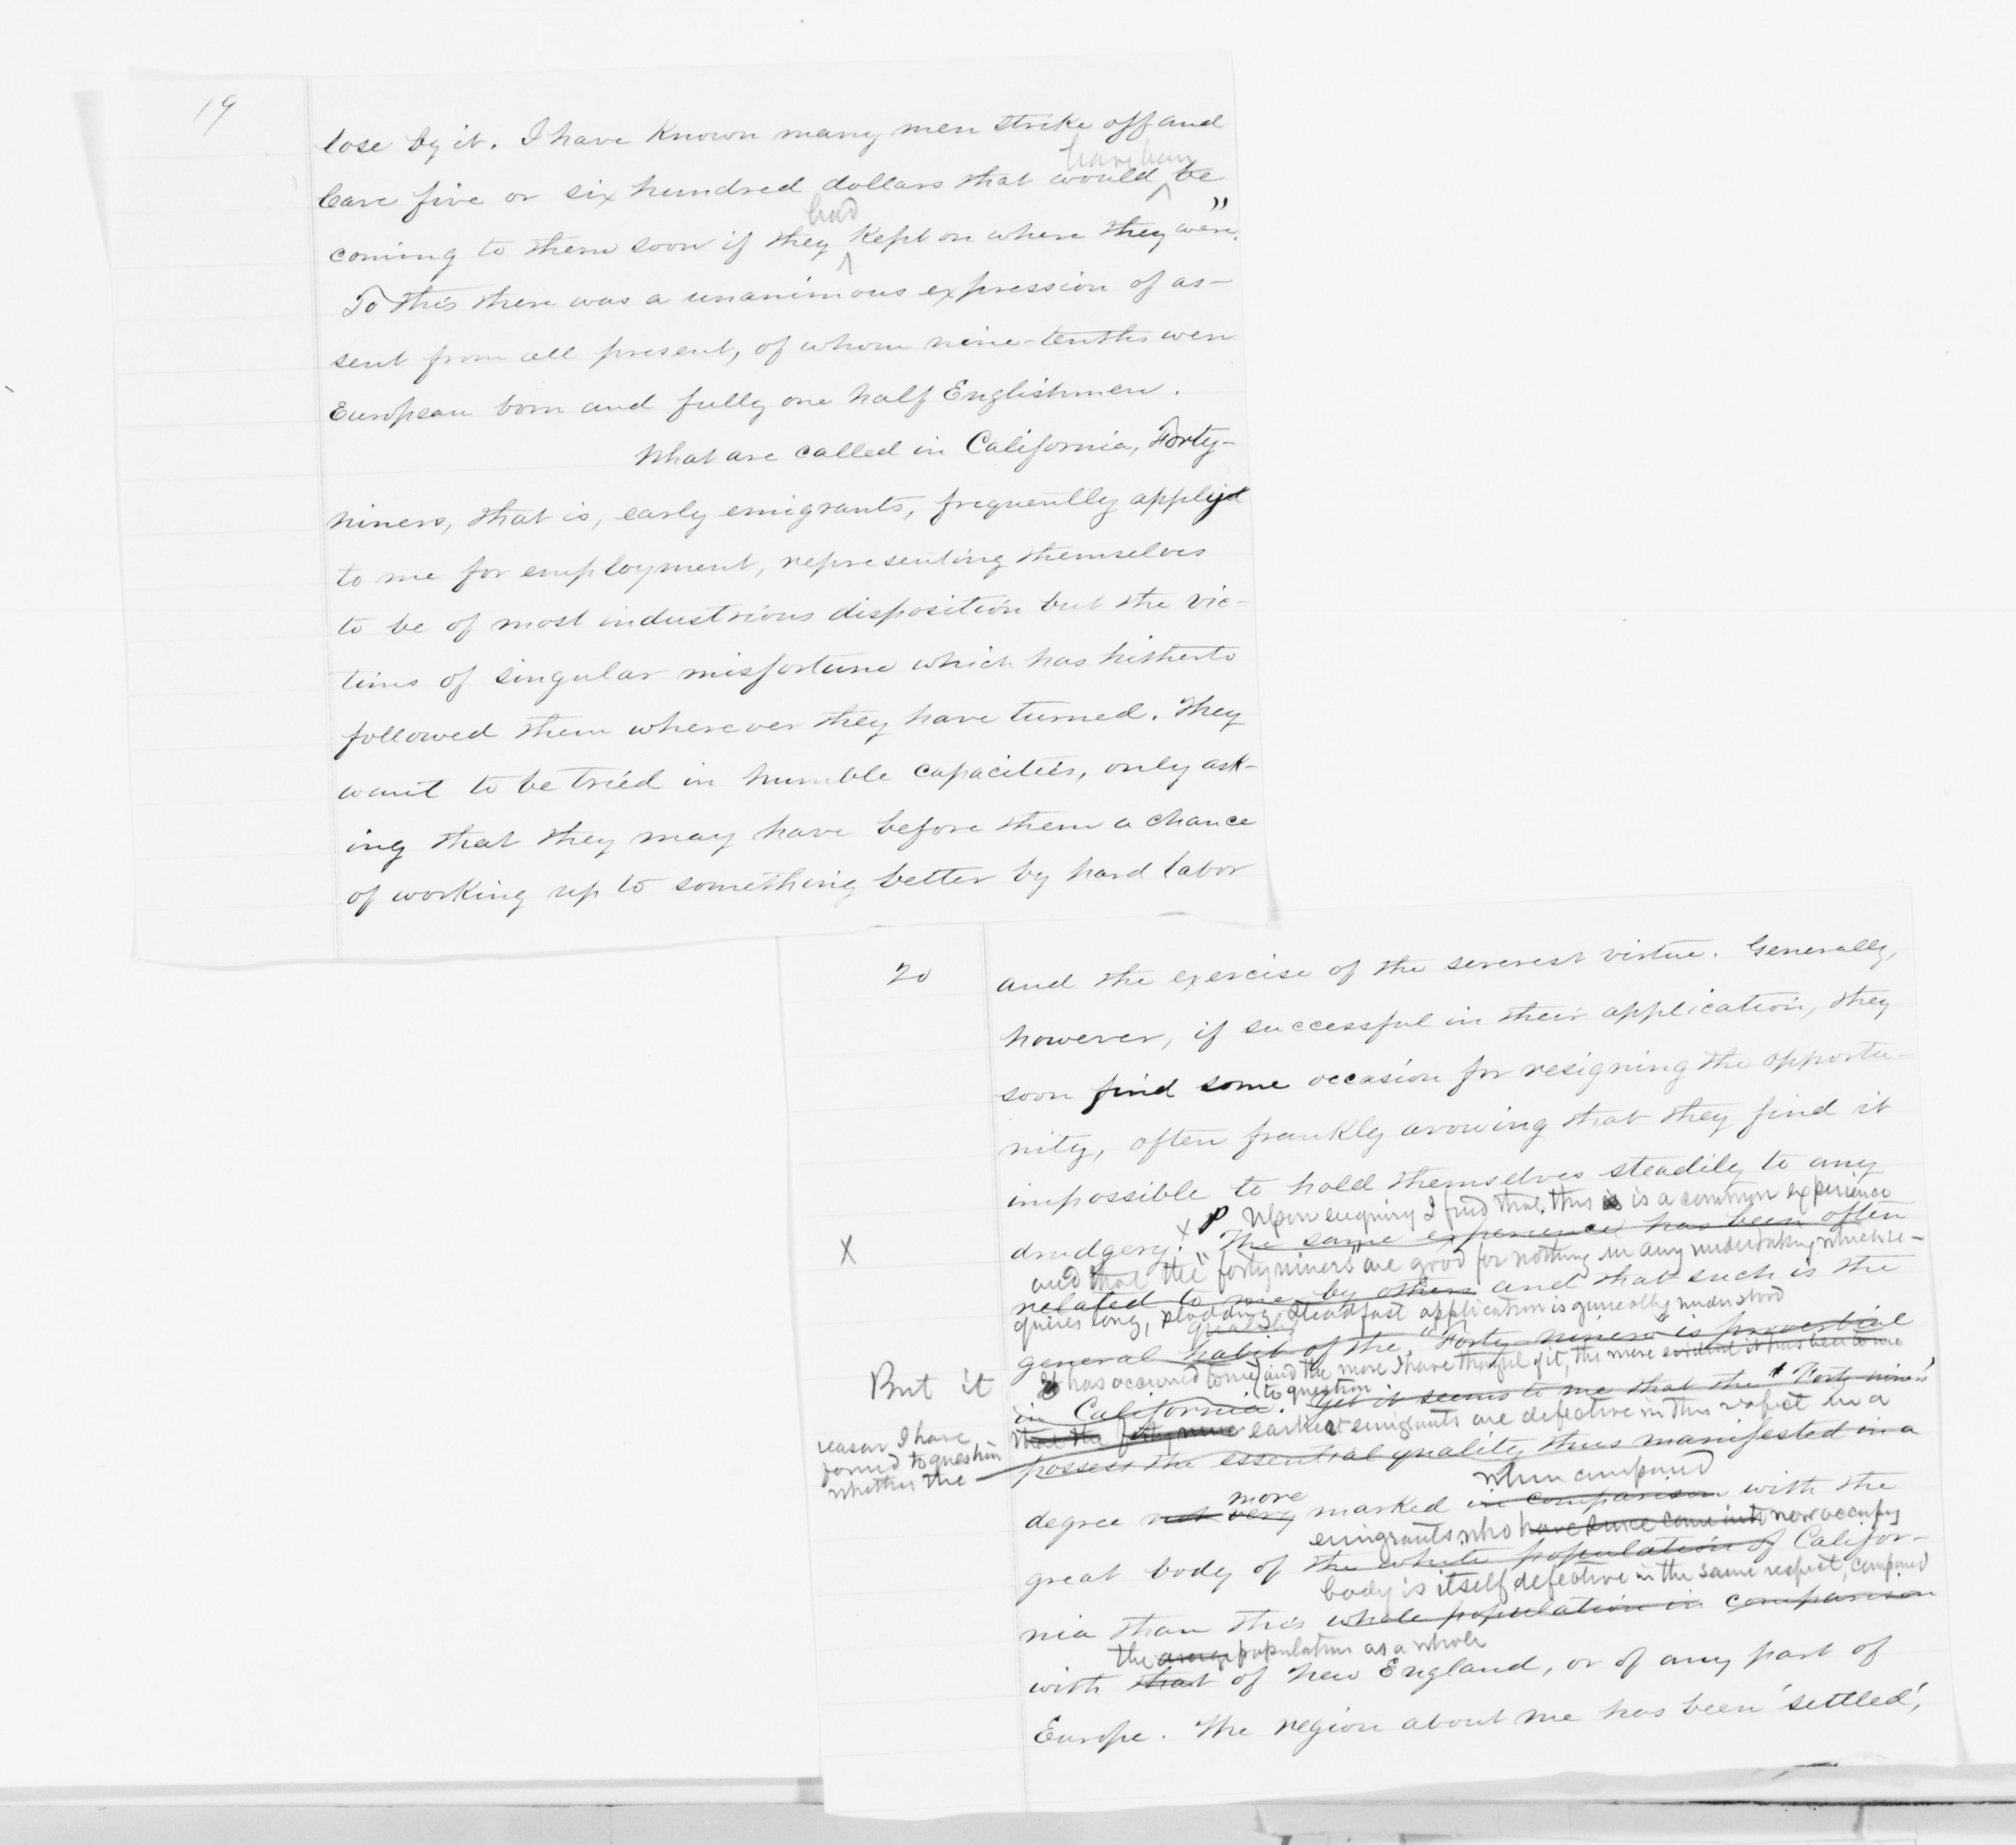 19
lose by it. I have known many men strike off and
have been
leave five or six hundred dollars that would be
had
coming to them soon if they kept on where they were."
To this there was a unanimous expression of as-
sent from all present, of whom nine-tenths were
European born and fully one half Englishmen.
What are called in California, Forty-
niners, that is, early emigrants, frequently applied
to me for employment, representing themselves
to be of most industrious disposition but the vic-
tims of singular misfortune which has hitherto
followed them wherever they have turned. They
want to be tried in humble capacities, only ask-
ing that they may have before them a chance
of working up to something better by hard labor
20
and the exercise of the severest virtue. Generally,
however, if successful in their application, they
soon find some occasion for resigning the opportu-
nity, often frankly avowing that they find it
impossible to hold themselves steadily to any
x P Upon enquiry I find that this is is a common experience
X
drudgery. The same experience has been often
and that the "forty niners" are good for nothing in any undertaking which re-
related to me by others and that such is the
quires long, plodding, steadfast application is generally understood
quality
general habit of the "Forty niners" is proverbial
But it
It has occurred to me, and the more I have thought of it, the more evident it has been to me
to question
in California. Yet it seems to me that the "Forty niners"
reason I have
found to question
whether the
that the forty nine earliest emigrants are defective in this respect in a
possess the essential quality thus manifested in a
more
when compared
degree not very marked in comparison with the
emigrants who have since come into now occupy
great body of the white population of Califor-
body is itself defective in the same respect, compared
nia than this whole population in comparison
the average population as a whole
with that of New England, or of any part of
Europe. The region about me has been 'settled',